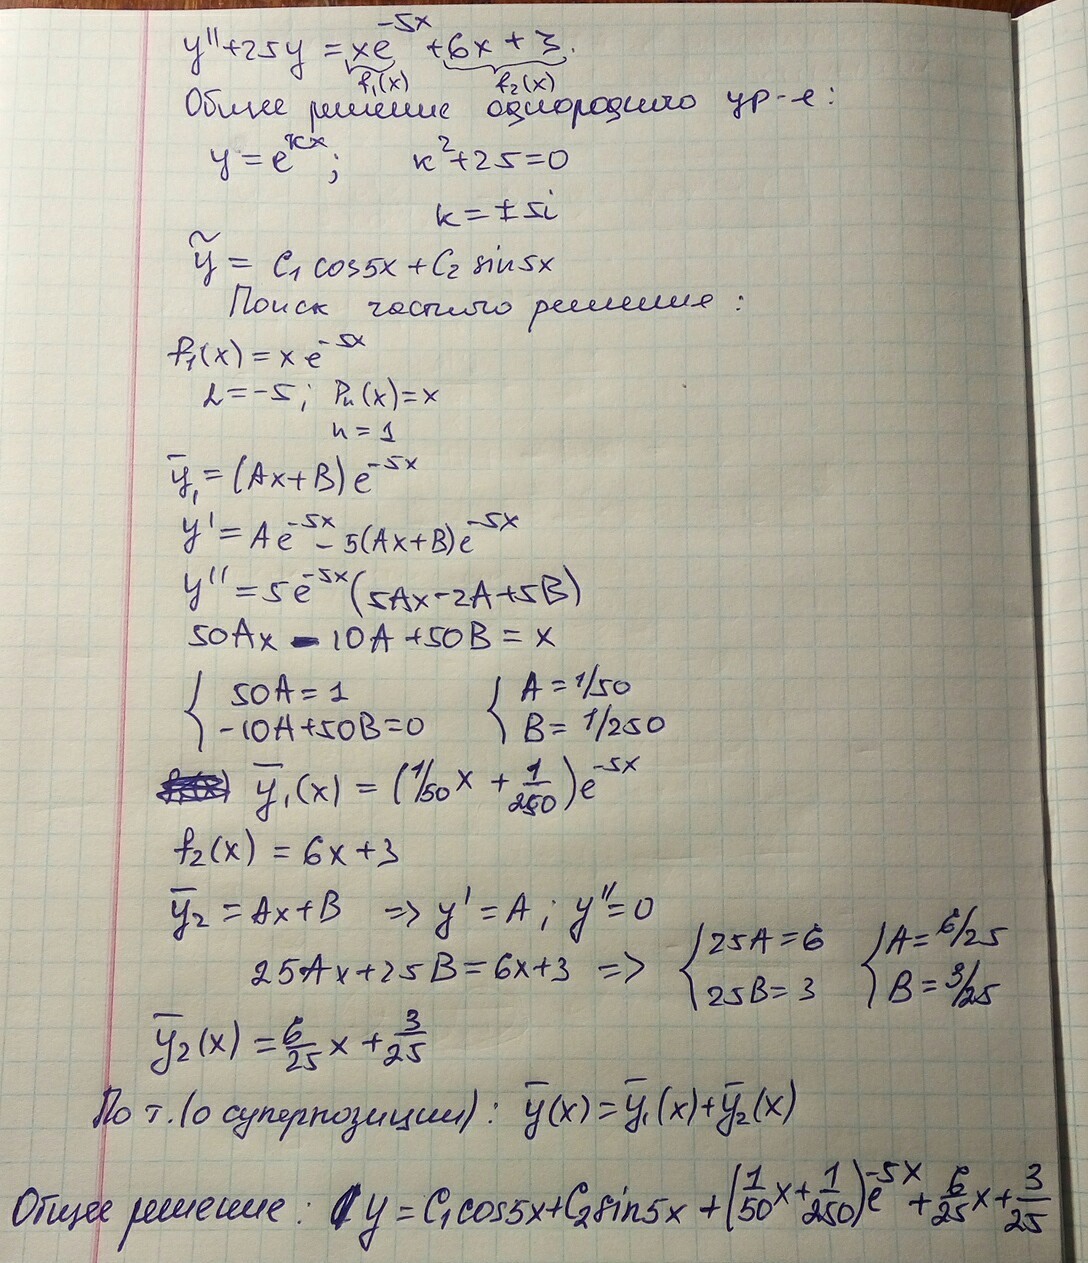 y''+25y = xe^{-5x} + 6x + 3.
f₁(x) f₂(x)
Общее решение однородного ур-е:
y = e^{kx}; k²+25=0
k = ±5i
ỹ = C₁ cos5x + C₂ sin5x
Поиск частного решение:
f₁(x) = x e^{-5x}
λ=-5; Pₙ(x)=x
n = 1
ȳ₁ = (Ax+B) e^{-5x}
y' = Ae^{-5x} - 5(Ax+B)e^{-5x}
y'' = 5e^{-5x}(5Ax-2A+5B)
50Ax - 10A + 50B = x
{ 50A = 1 { A = 1/50
-10A+50B=0 B = 1/250
ȳ₁(x) = (1/50 x + 1/250)e^{-5x}
f₂(x) = 6x+3
ȳ₂ = Ax+B => y' = A; y''=0
25Ax+25B=6x+3 => { 25A=6 { A=6/25
25B=3 B=3/25
ȳ₂(x) = 6/25 x + 3/25
По т. (о суперпозиции): ȳ(x) = ȳ₁(x)+ȳ₂(x)
Общее решение: y = C₁cos5x+C₂sin5x + (1/50 x + 1/250)e^{-5x} + 6/25 x + 3/25